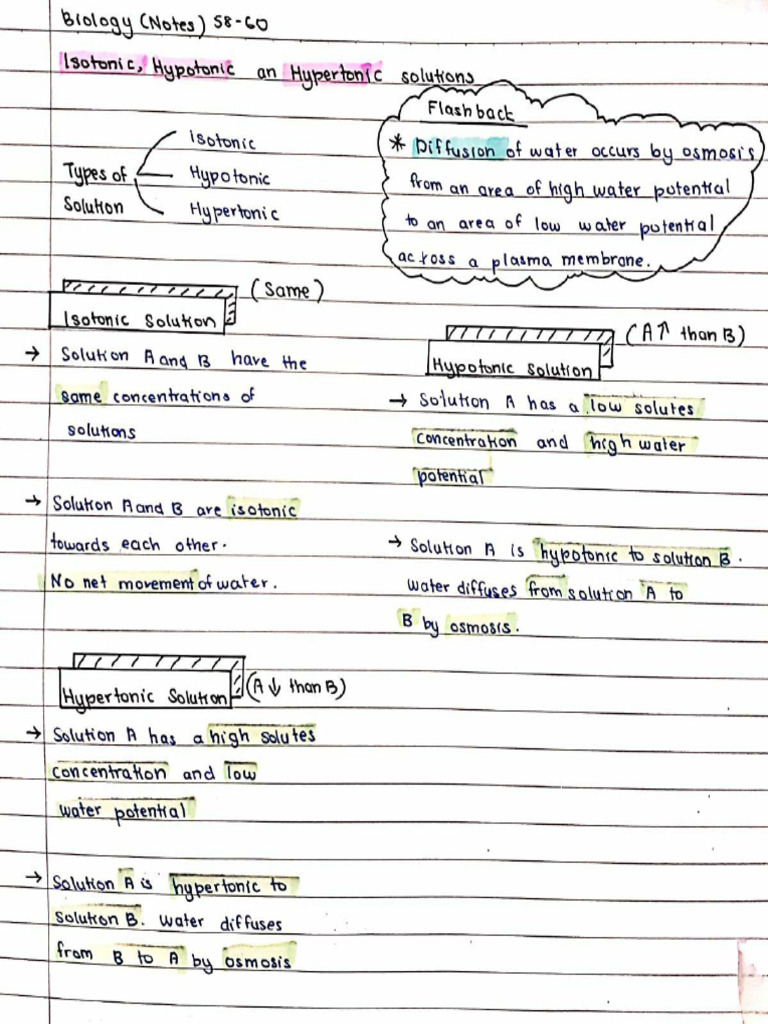 Biology (Notes) 58-60
Isotonic, Hypotonic an Hypertonic solutions
Flashback
* Diffusion of water occurs by osmosis
from an area of high water potential
to an area of low water potential
across a plasma membrane.
Types of
Solution
Isotonic
Hypotonic
Hypertonic
(Same)
Isotonic Solution
→ Solution A and B have the
same concentrations of
solutions
→ Solution A and B are isotonic
towards each other.
No net movement of water.
(A↑ than B)
Hypotonic Solution
→ Solution A has a low solutes
concentration and high water
potential
→ Solution A is hypotonic to solution B.
water diffuses from solution A to
B by osmosis.
Hypertonic Solution (A↓ than B)
→ Solution A has a high solutes
concentration and low
water potential
→ Solution A is hypertonic to
solution B. Water diffuses
from B to A by osmosis